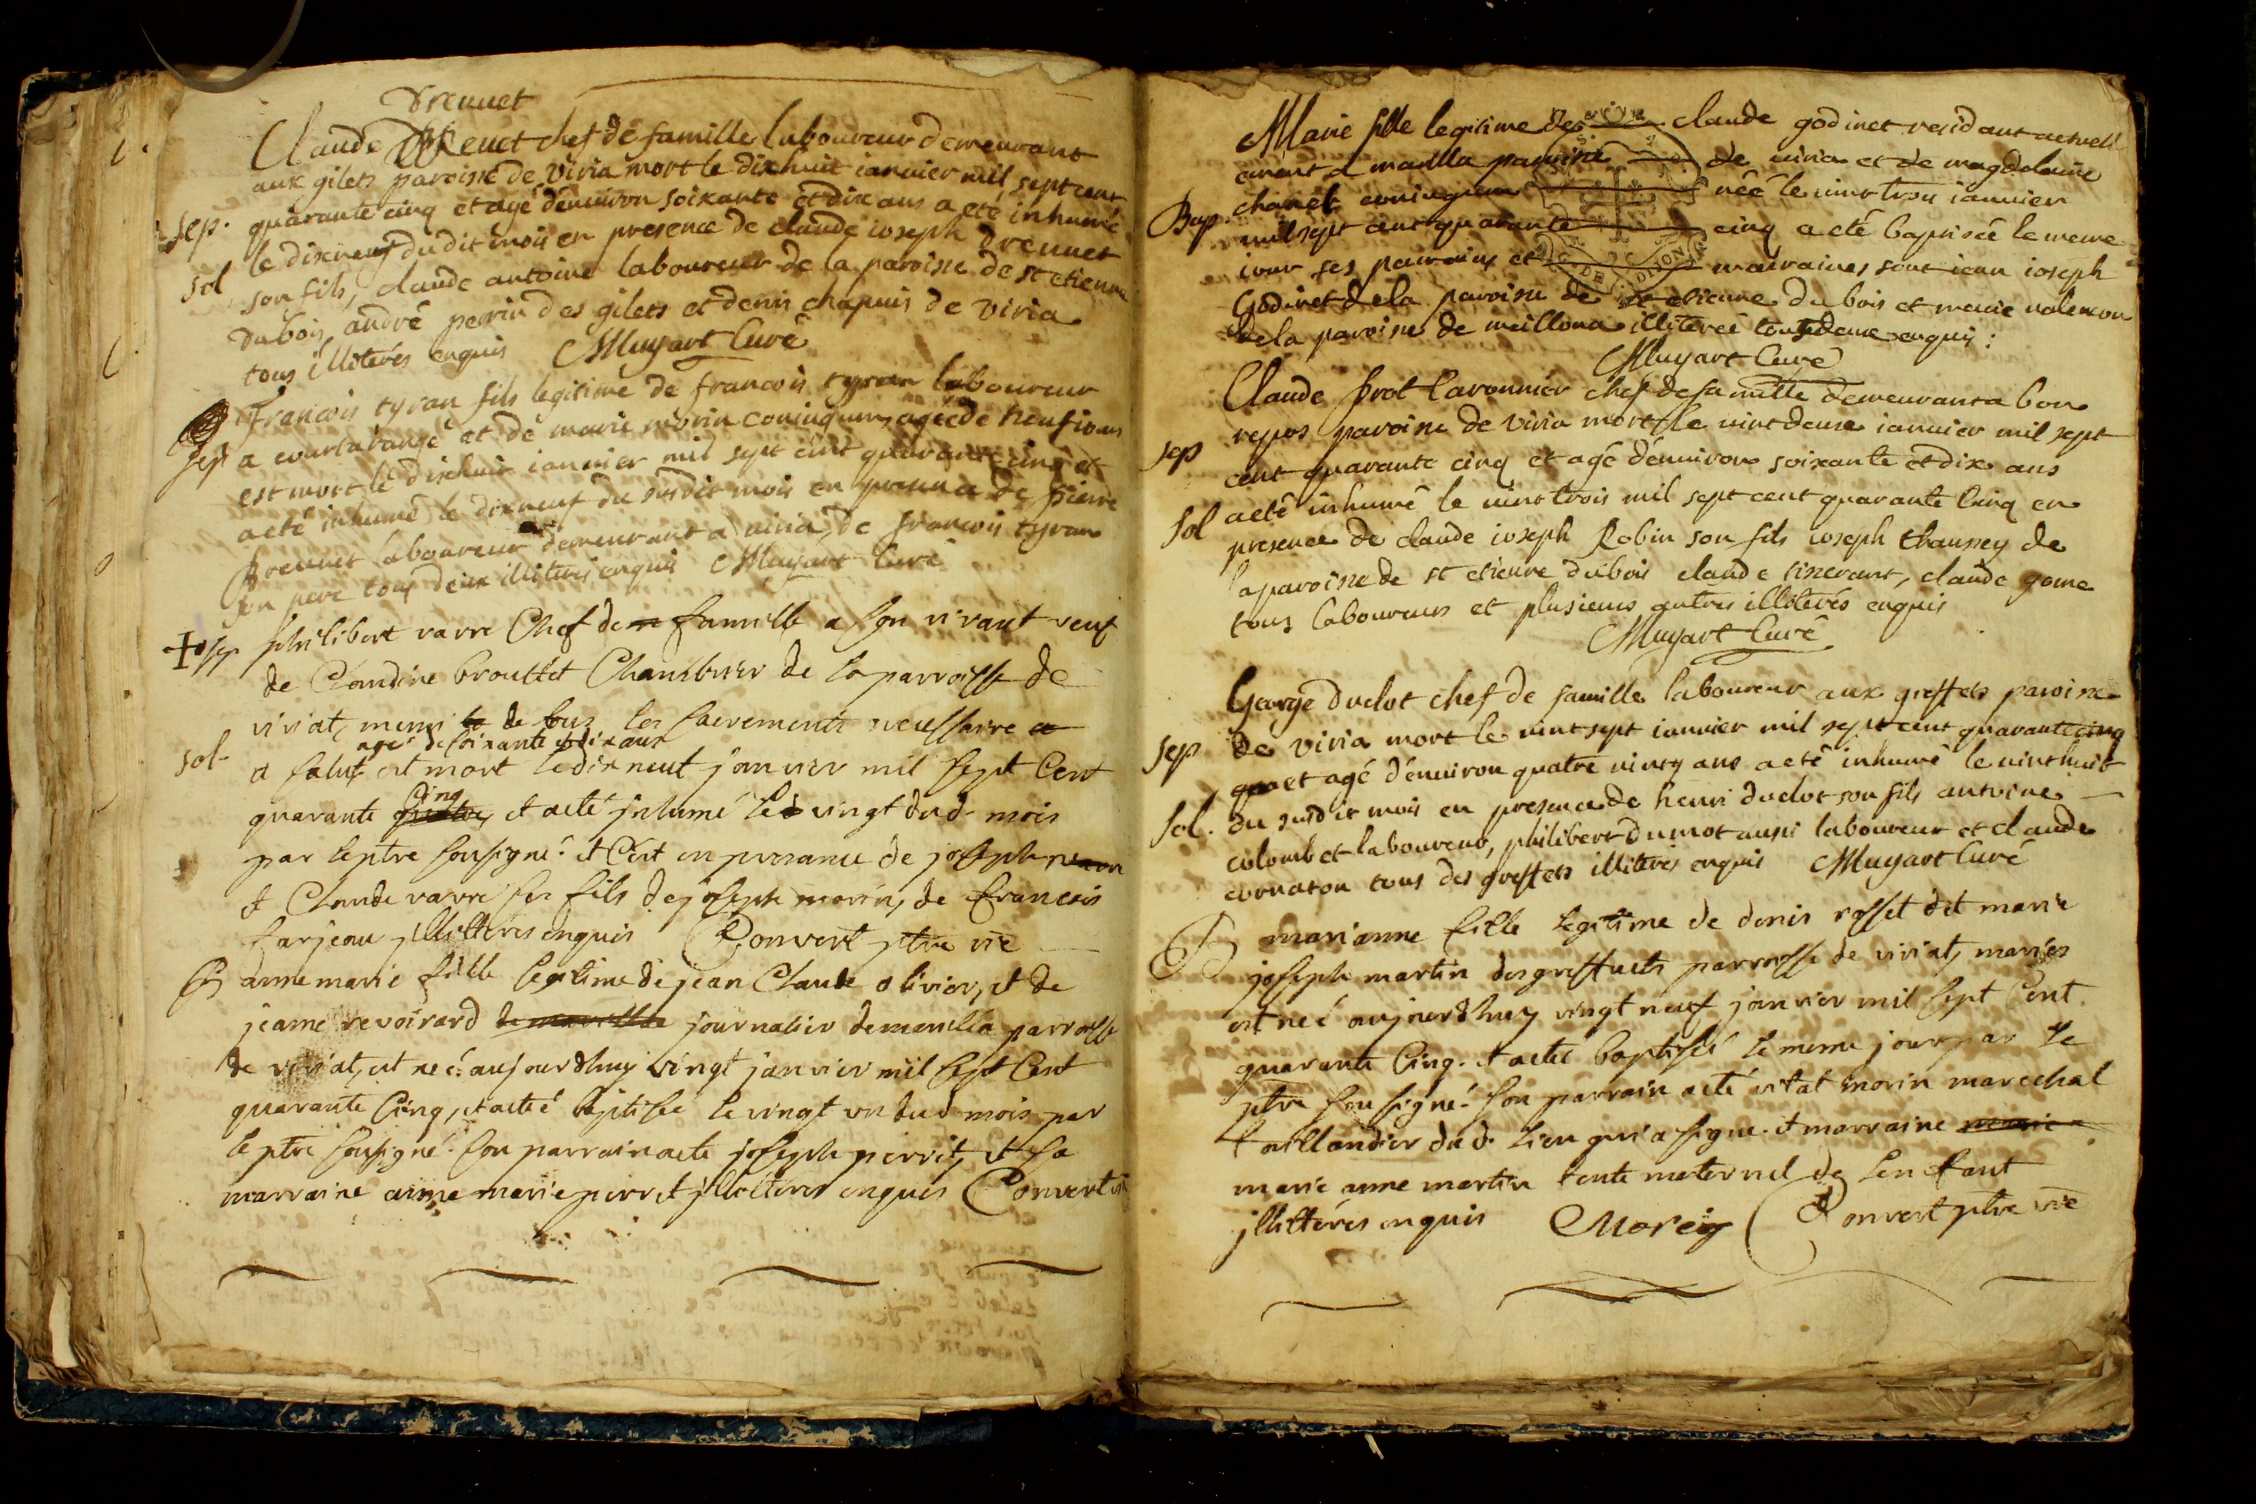 Drevuet
Claude Drevuet chef de famille laboureur demeurant
aux gilets paroisse de viria mort le dixhuit ianuier mil sept cent
sep. quarante cinq et agé d'enuiron soixante et dix ans a eté inhumé
le dixneuf du dit mois en presence de claude ioseph drevuet
sol son fils, claude antoine laboureur de la paroisse de st etienne
du bois, andré perrin des gilets et denis chapuis de viria
tous illiterés enquis Muyart Curé
francois tyran fils legitime de francois tyran laboureur
sep a courtaranse et de marie morin coniugum, agé de neuf iours
est mort le dixhuit ianuier mil sept cent quarante cinq et
a eté inhumé le dixneuf du susdit mois en presence de pierre
breuuet laboureur demeurant a viria, de francois tyran
son pere tous deux illiterés enquis Muyart Curé
+ sep philibert varre Chef de famille a son vivant veuf
de Claudine brouttet Chambrier de la parroisse de
viriat, muni de tous les sacrements necessaire
agé de soixante et dix ans
sol a salut est mort le dix neuf janvier mil sept Cent
cinq
quarante quatre et a eté jnhumé le vingt dud. mois
par le ptre soussigné. et C'est en presance de joseph
et Claude varre ses fils de joseph morin, de francois
farjeau jllitterés enquis Convert ptre vre
B anne marie fille legitime de jean Claude olivier, et de
jeanne revoirard journalier de marilla parroisse
de viriat, est née aujourdhuy vingt janvier mil sept Cent
quarante Cinq, et a eté baptisée le vingt un dud mois par
le ptre soussigné. son parrain a eté joseph pirrit, et sa
marraine anne marie pirrit jllitterés enquis Convert
Marie fille legitime de claude godinet residant actuell
ement a marilla paroisse de viria et de magdelaine
Bap. chanel coniugum née le uint trois ianuier
mil sept cent quarante cinq a eté baptisée le meme
iour ses pairains et mairaines sont iean ioseph
Godinet de la paroisse de st etienne du bois et marie ualencon
de la paroisse de meillona illiterée tous deux enquis:
Muyart Curé
Claude prot Caronnier chef de famille demeurant a bon
repos paroisse de viria mort le uint deux ianuier mil sept
sep cent quarante cinq et agé d'enuiron soixante et dix ans
a eté inhumé le uint trois mil sept cent quarante cinq en
sol presence de claude ioseph Robin son fils ioseph Chaussey de
la paroisse de st etienne du bois claude tinerant, claude gome
tous laboureurs et plusieurs autres illiterés enquis
Muyart Curé
George duclot chef de famille laboureur aux greffets paroisse
sep de viria mort le uint sept ianuier mil sept cent quarante cinq
et agé d'enuiron quatre uincq ans a eté inhumé le uint huit
sol. du susdit mois en presence de henri duclot son fils antoine
colombet laboureur, philibert dumot aussi laboureur et claude
cornaton tous des greffets illiterés enquis Muyart Curé
B marianne fille legitime de denis rosset et marie
joseph martin des greffets parroisse de viriat, mariés
est neé aujourdhuy vingt neuf janvier mil sept Cent
quarante Cinq. et a eté baptisée le meme jour par le
ptre soussigné. son parrain a eté vital morin marechal
taillandier du d. lieu qui a signé. et marraine
marie anne martin tente maternel de lenfant
jllitterés enquis Morey Convert ptre vre